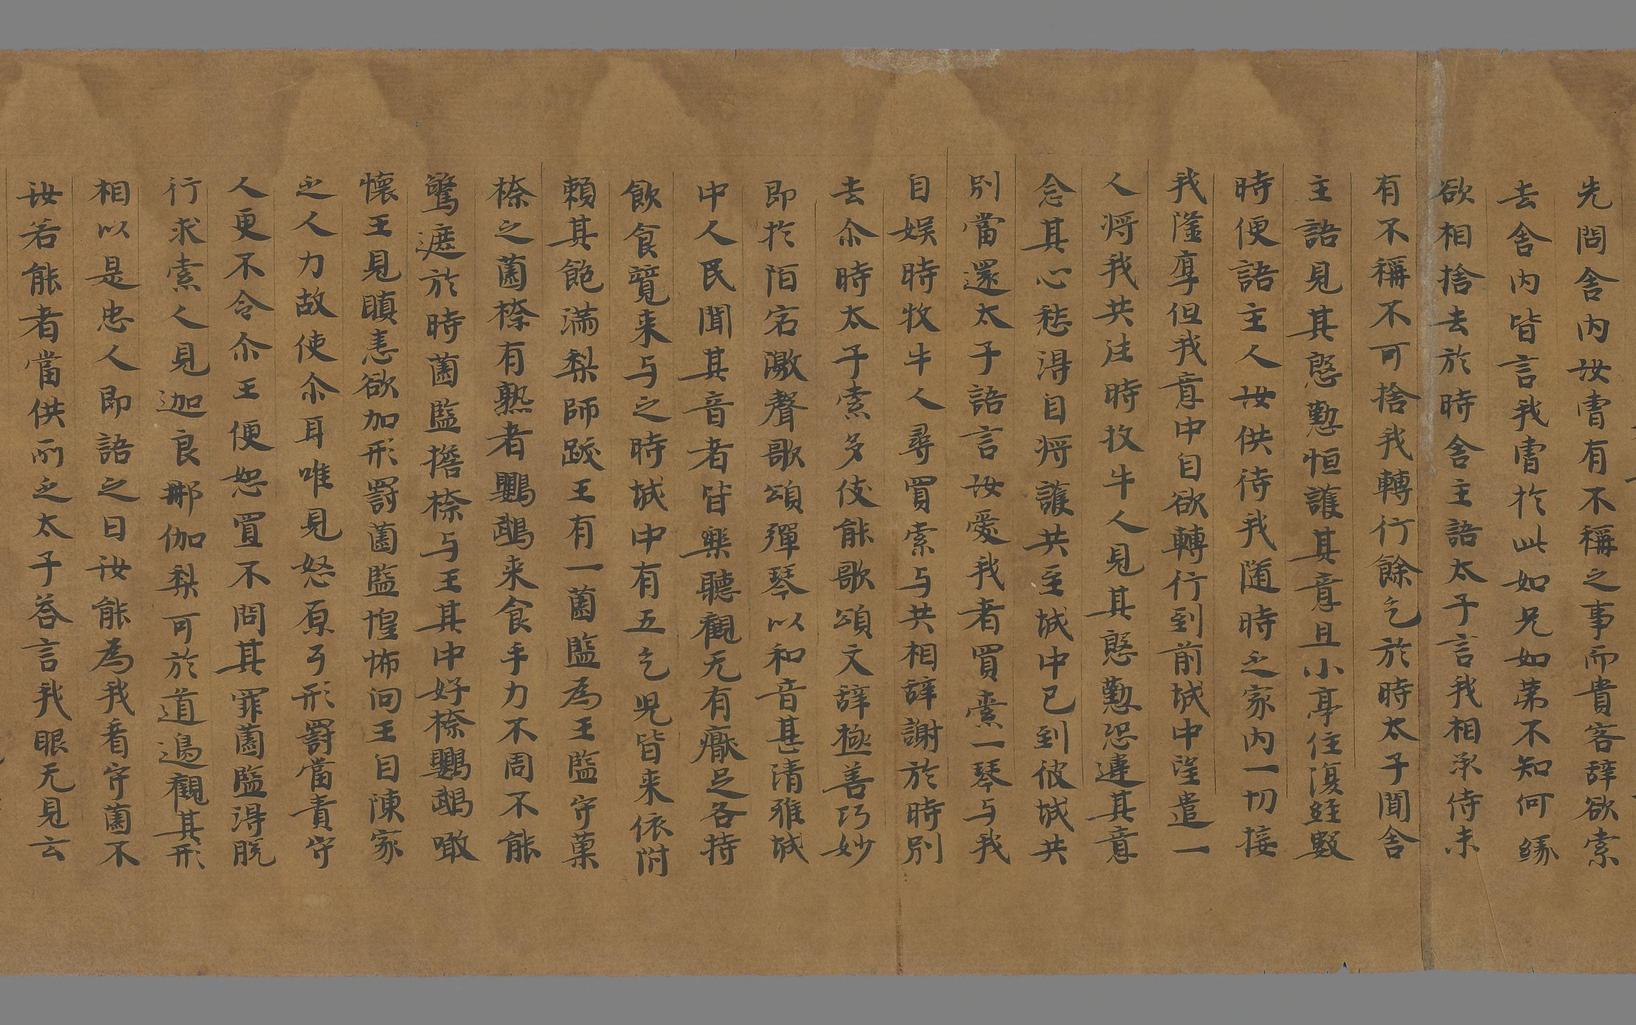 先問舍内汝曹有不稱之事而貴客辞欲索
去舍内皆言我曹於此如兄如苐不知何縁
欲相捨去於時舍主語太子言我相承侍未
有不稱不可捨我轉行餘乞於時太子聞舍
主語見其慇懃恒護其意且小亭住復經數
時便語主人汝供待我随時之家内一切接
我隆厚但我意中自欲轉行到前城中望遣一
人將我共往時牧牛人見其慇懃恐違其意
念其心愁得自將護共至城中已到彼城共
別當還太子語言汝愛我者買索一琴与我
自娯時牧牛人尋買索与共相辞謝於時別
去尒時太子素多伎能歌頌文辞極善巧妙
即於陌宕激聲歌頌彈琴以和音甚清雅城
中人民聞其音者皆樂聽觀无有猒足各持
飲食覓来与之時城中有五乞児皆来依附
頼其飽滿梨師跋王有一薗監為王監守菓
㮈之薗㮈有熟者鸚鵡来食手力不周不能
驚遮於時薗監擔㮈与王其中好㮈鸚鵡噉
懐王見瞋恚欲加形罸薗監惶怖向王自陳家
之人力故使尒耳唯見怒原丐形罸當責守
人更不令尒王便恕置不問其罪薗監得脱
行求索人見迦良那伽梨可於道邉觀其形
相以是忠人即語之曰汝能為我看守薗不
汝若能者當供所之太子荅言我眼无見云